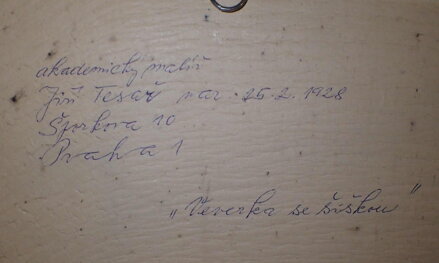 akademický malíř
Jiří Tesař nar. 25.2.1928
Šporkova 10
Praha 1
„Veverka se šiškou"